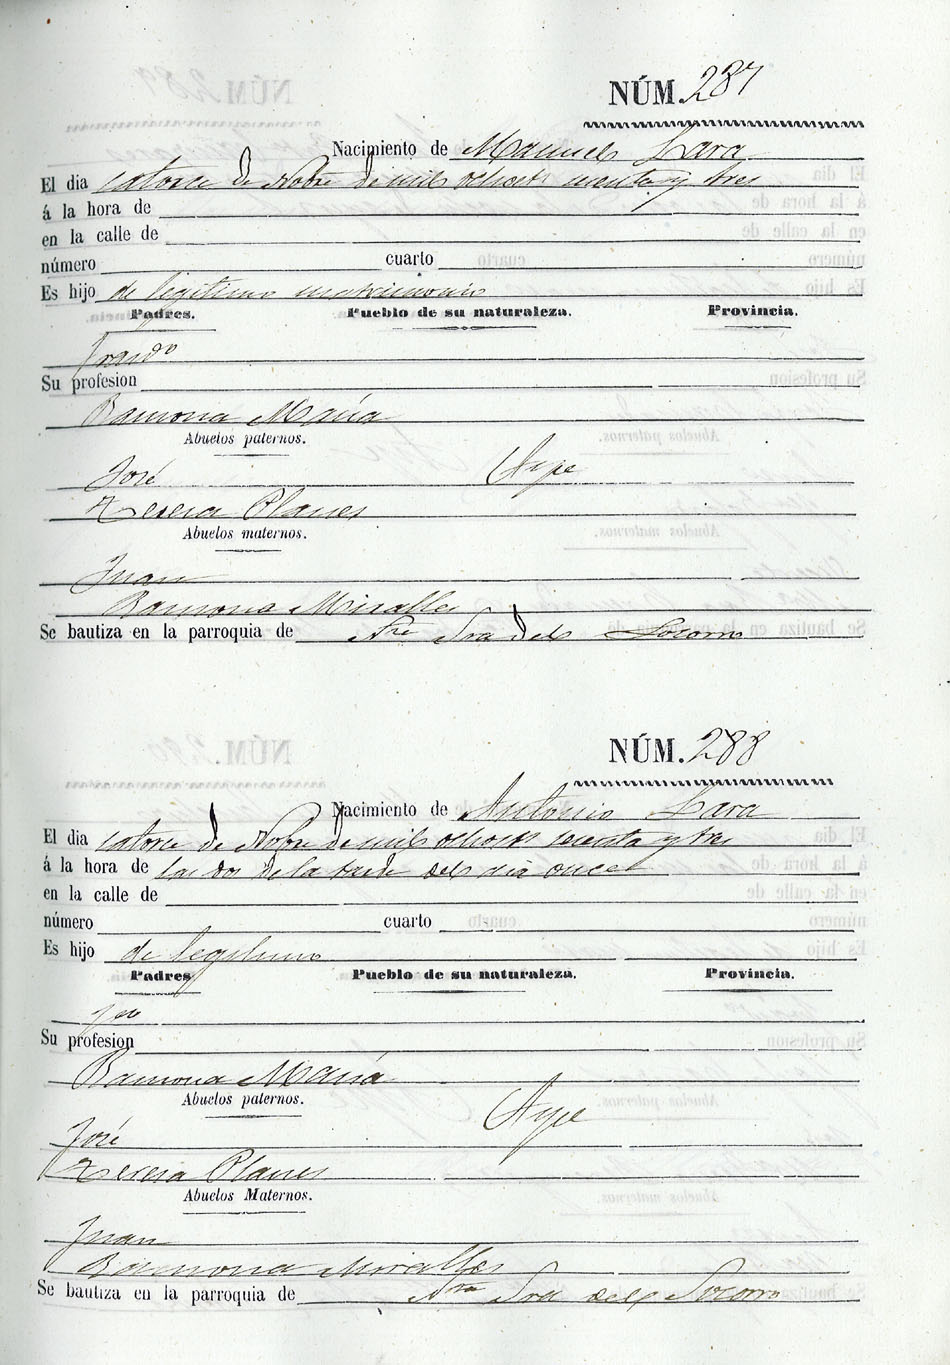 NÚM. 287
Nacimiento de Manuel Lara
El dia catorce de Nobre de mil ochocts sesenta y tres
á la hora de
en la calle de
número cuarto
Es hijo de legitimo matrimonio
Padres. Pueblo de su naturaleza. Provincia.
Franco
Su profesion
Ramona María
Abuelos paternos.
José Aspe
Teresa Planes
Abuelos maternos.
Juan
Ramona Miralles
Se bautiza en la parroquia de Ntra Sra del Socorro
NÚM. 288
Nacimiento de Antonio Lara
El dia catorce de Nobre de mil ochocts sesenta y tres
á la hora de las dos de la tarde del dia once
en la calle de
número cuarto
Es hijo de legitimo
Padres Pueblo de su naturaleza. Provincia.
Su profesion
Ramona María
Abuelos paternos.
José Aspe
Teresa Planes
Abuelos Maternos.
Juan
Ramona Miralles
Se bautiza en la parroquia de Ntra Sra del Socorro